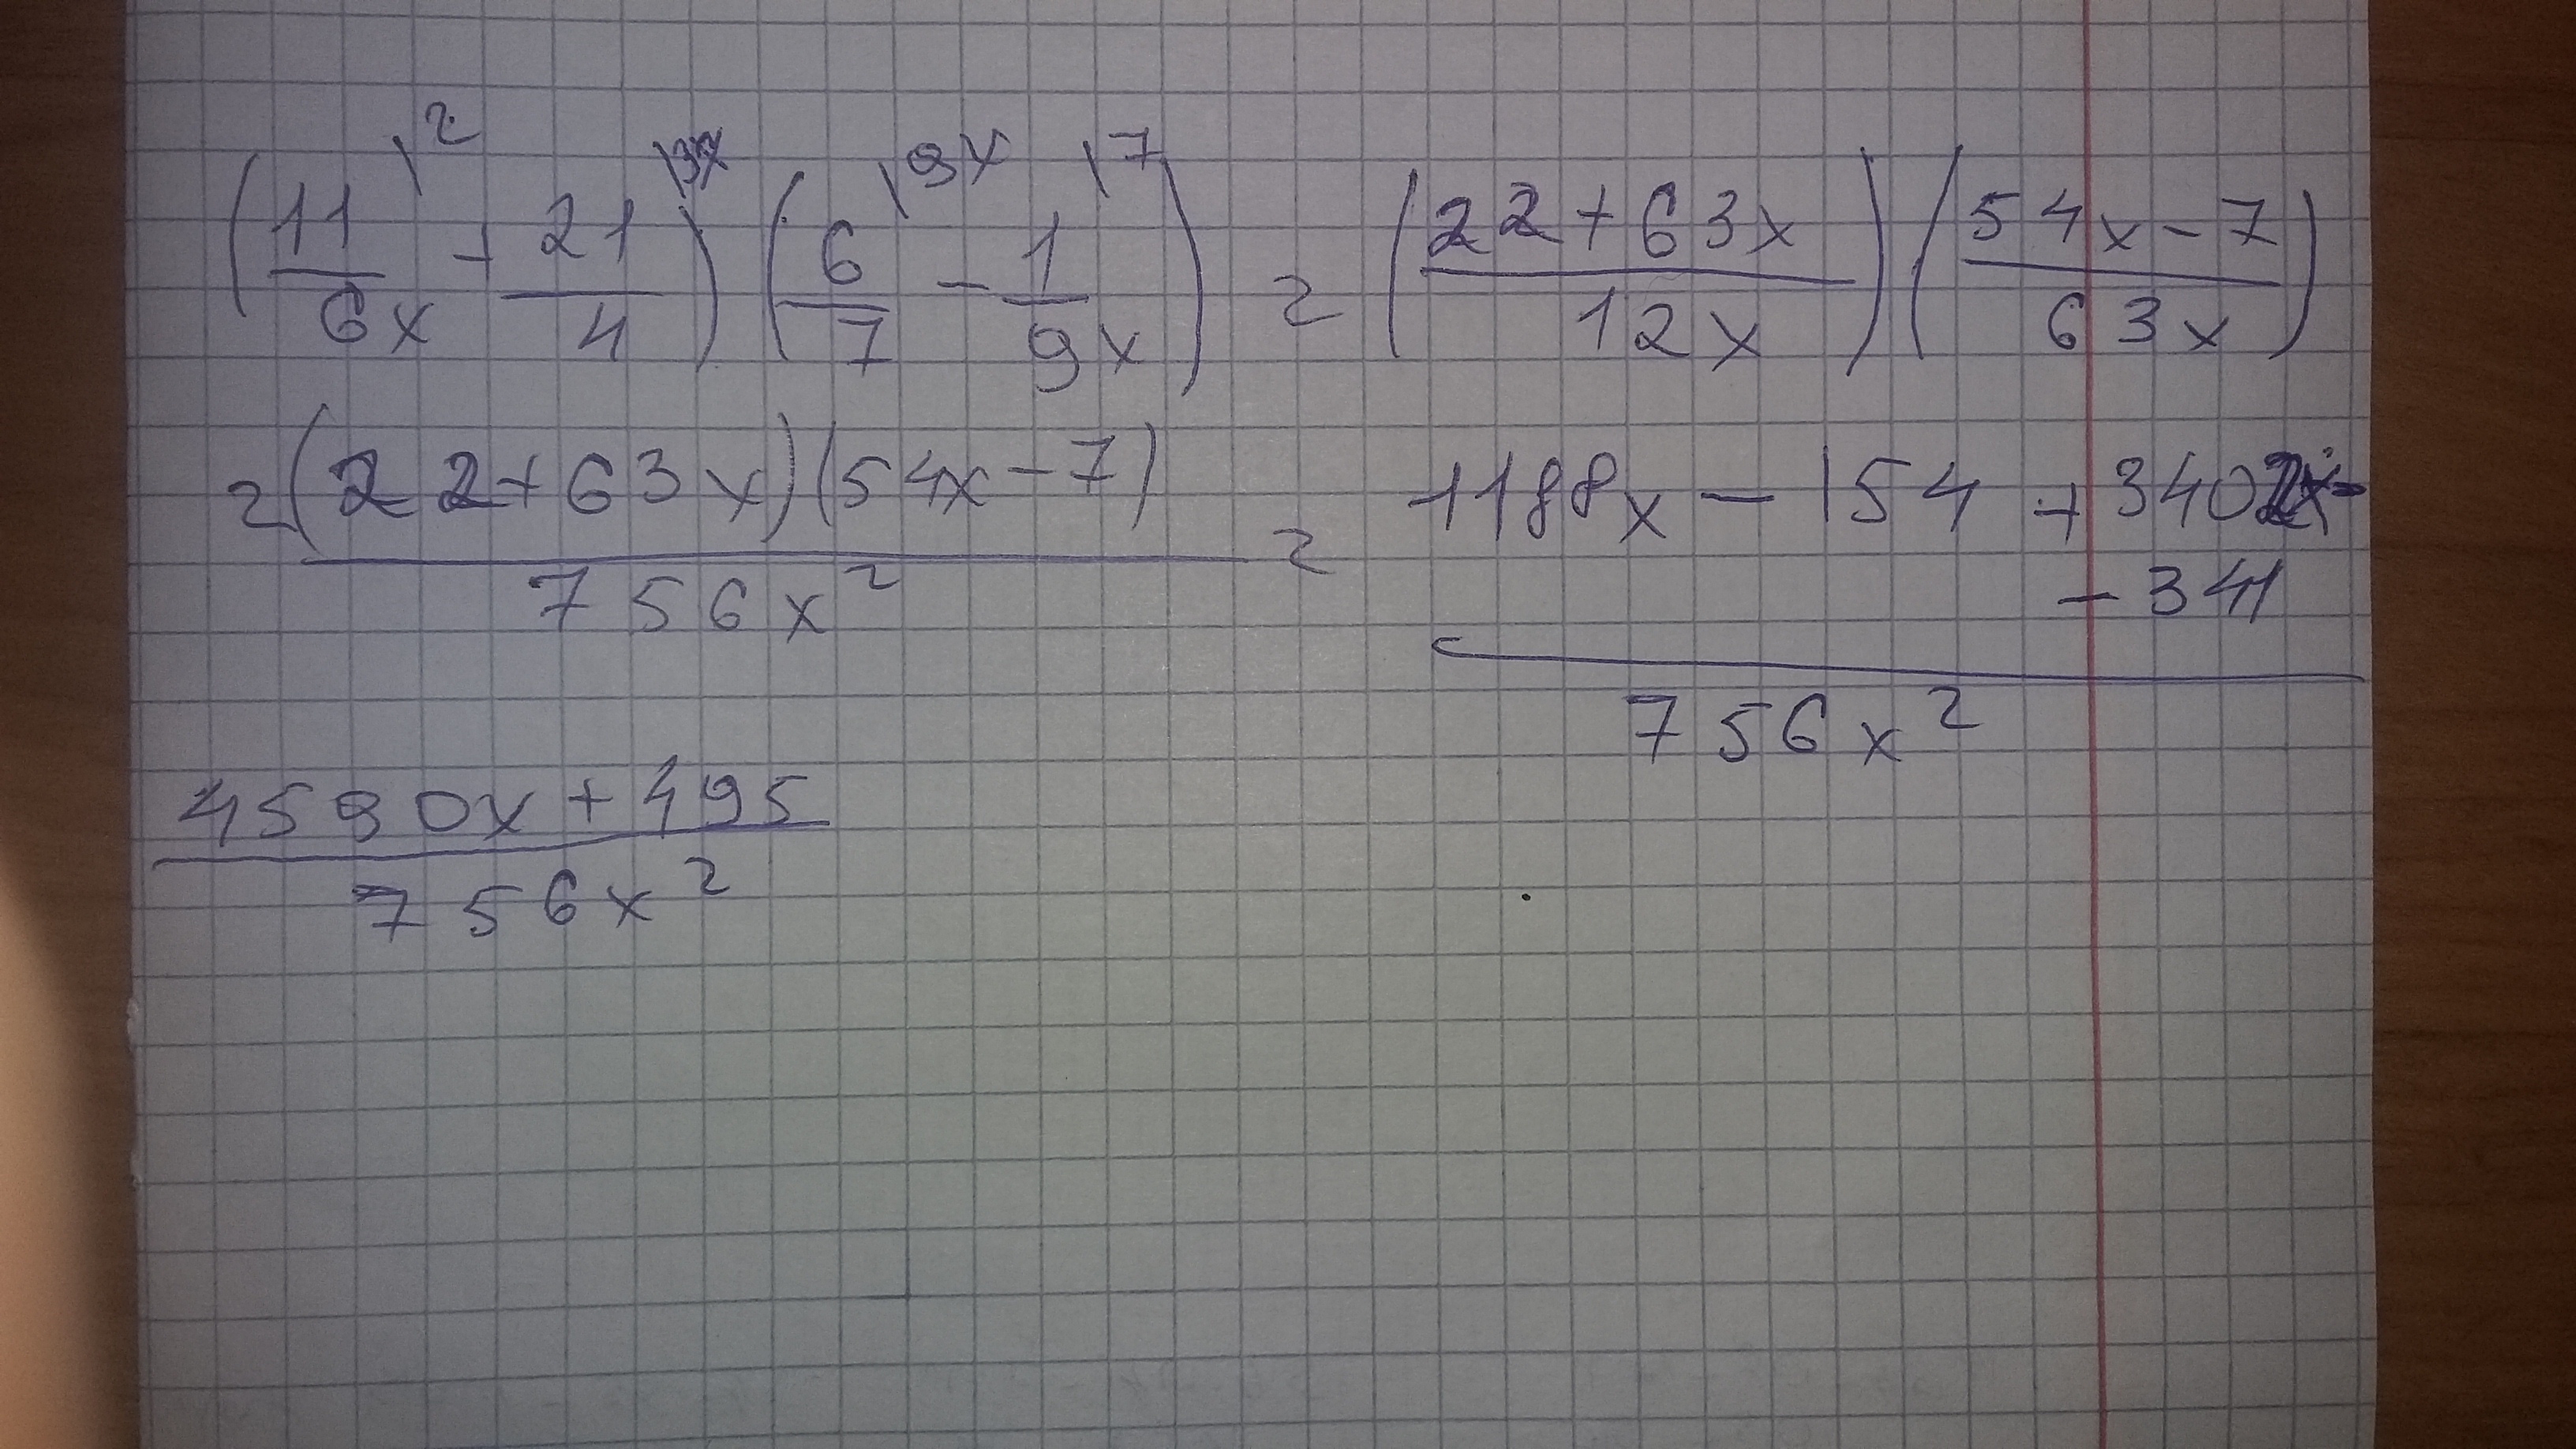 (11/6x \2 + 21/4 \3x) (6/7 \9x - 1/9x \7) = (22+63x / 12x) (54x-7 / 63x)
= (22+63x)(54x-7) / 756x² = 1188x - 154 + 3402x - - 341 / 756x²
4590x + 495 / 756x²